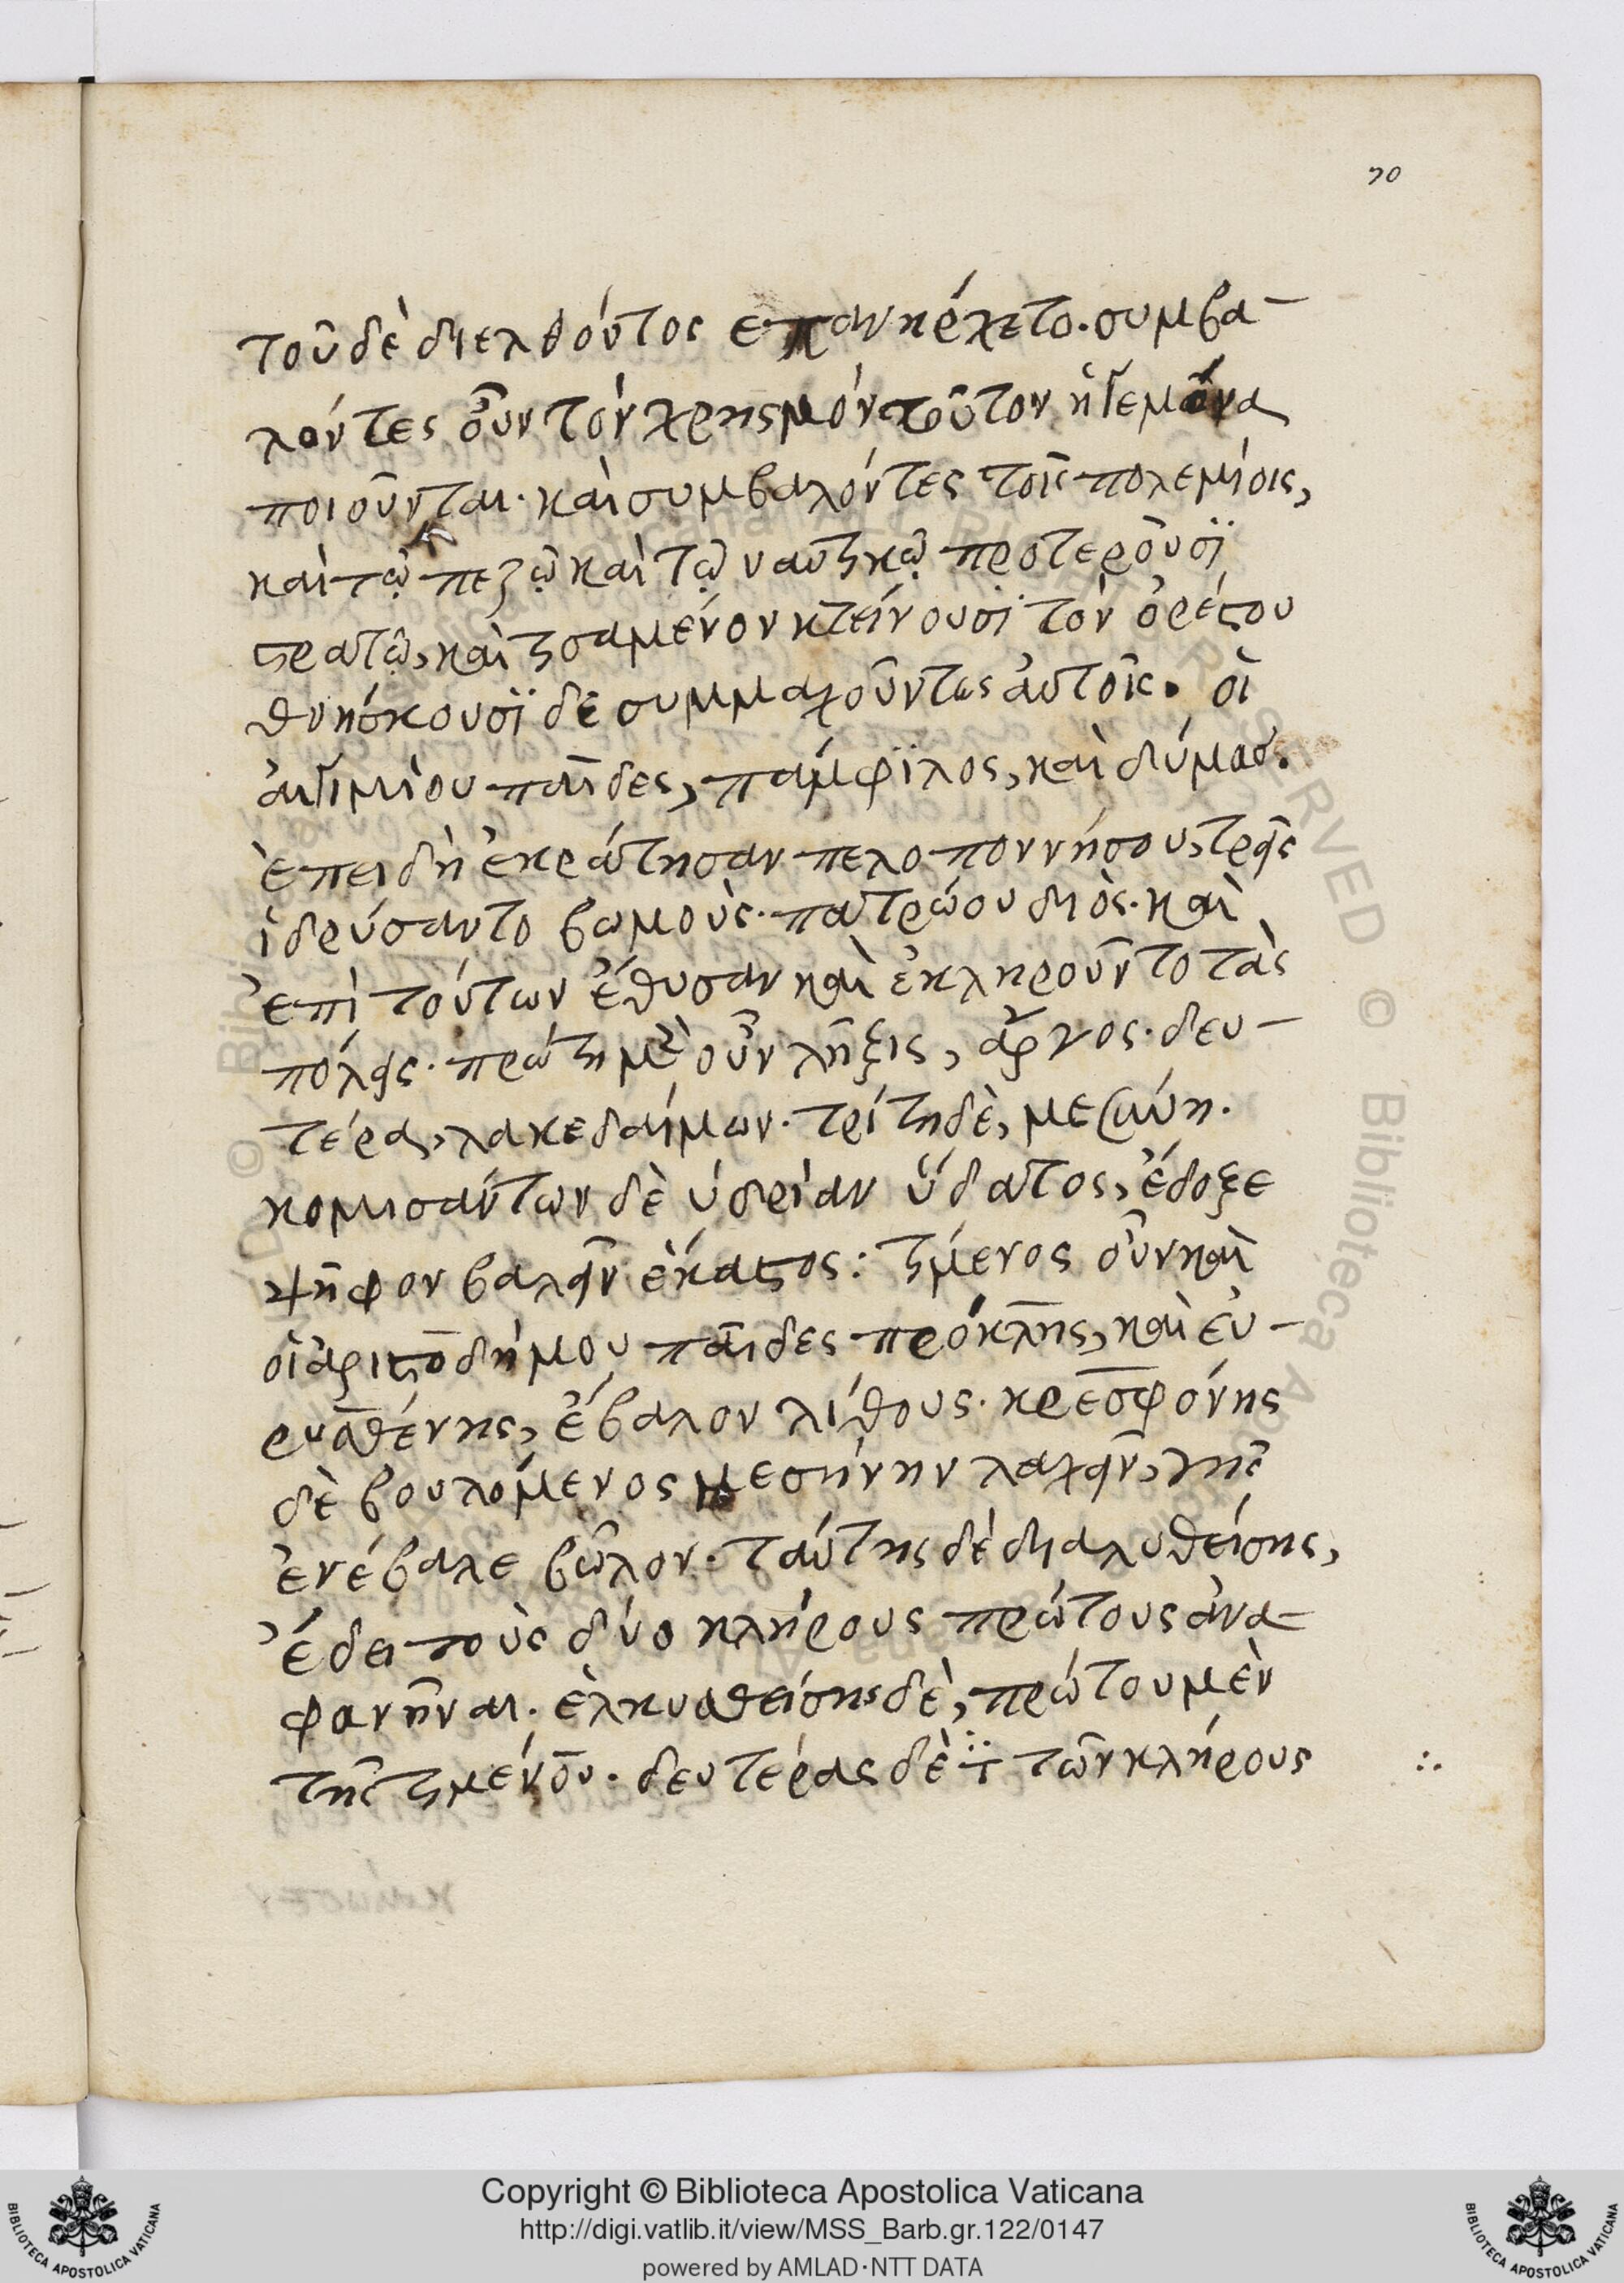 70
τοῦ δὲ διελθόντος ἐπανήρχετο. συμβα-
λόντες οὖν τὸν χρησμὸν τοῦτον ἡγεμόνα
ποιοῦνται. καὶ συμβαλόντες τοῖς πολεμίοις,
καὶ τῷ πεζῷ καὶ τῷ ναυτικῷ προτεροῦσϊ
στρατῷ, καὶ τισαμένον κτείνουσϊ τὸν ὀρέστου
θνήσκουσϊ δὲ συμμαχοῦντες αὐτοῖς. οἱ
αἰγιμίου παῖδες, πάμφϊλος, καὶ δύμας.
ἐπειδὴ ἐκράτησαν πελοποννήσου, τρεῖς
ἱδρύσαντο βωμοὺς. πατρώου διὸς. καὶ
ἐπὶ τούτων ἔθυσαν καὶ ἐκληροῦντο τὰς
πόλεις. πρώτη μὲν οὖν λῆξις, ἄργος. δευ-
τέρα, λακεδαίμων. τρίτη δὲ, μεσσήνη.
κομισάντων δὲ ὑδρίαν ὕδατος, ἔδοξε
ψῆφον βαλεῖν ἕκαστος: τήμενος οὖν καὶ
οἱ ἀριστοδήμου παῖδες πρόκλης, καὶ εὐ-
ρυσθένης, ἔβαλον λίθους. κρεσφόντης
δὲ βουλόμενος μεσήνην λαχεῖν, γῆς
ἐνέβαλε βῶλον. ταύτης δὲ διαλυθείσης,
ἔδει τοὺς δύο κλήρους πρώτους ἀνα-
φανῆναι. ἑλκυσθείσης δὲ, πρώτου μὲν
τῆς τημένου. δευτέρας δὲ τῶν κλήρους
Copyright © Biblioteca Apostolica Vaticana
http://digi.vatlib.it/view/MSS_Barb.gr.122/0147
powered by AMLAD·NTT DATA